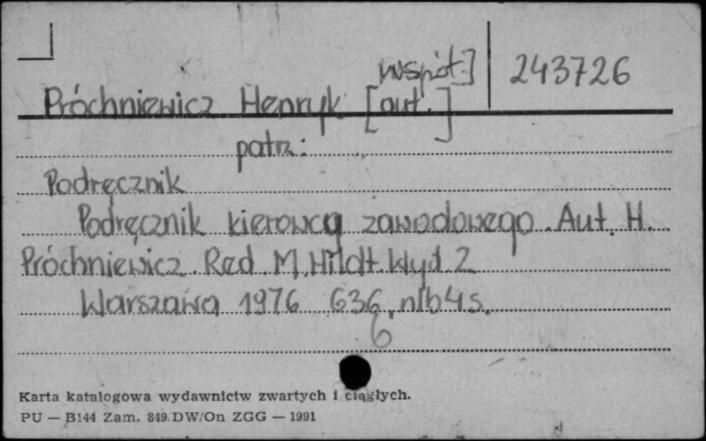 współ.] 243726
Próchniewicz Henryk [aut.]
patrz:
Podręcznik
Podręcznik kierowcy zawodowego. Aut. H.
Próchniewicz. Red M. Hildt. Wyd 2
Warszawa 1976 636, nlb 4 s.
6
Karta katalogowa wydawnictw zwartych i ciągłych.
PU — B144 Zam. 849 DW/On ZGG — 1991